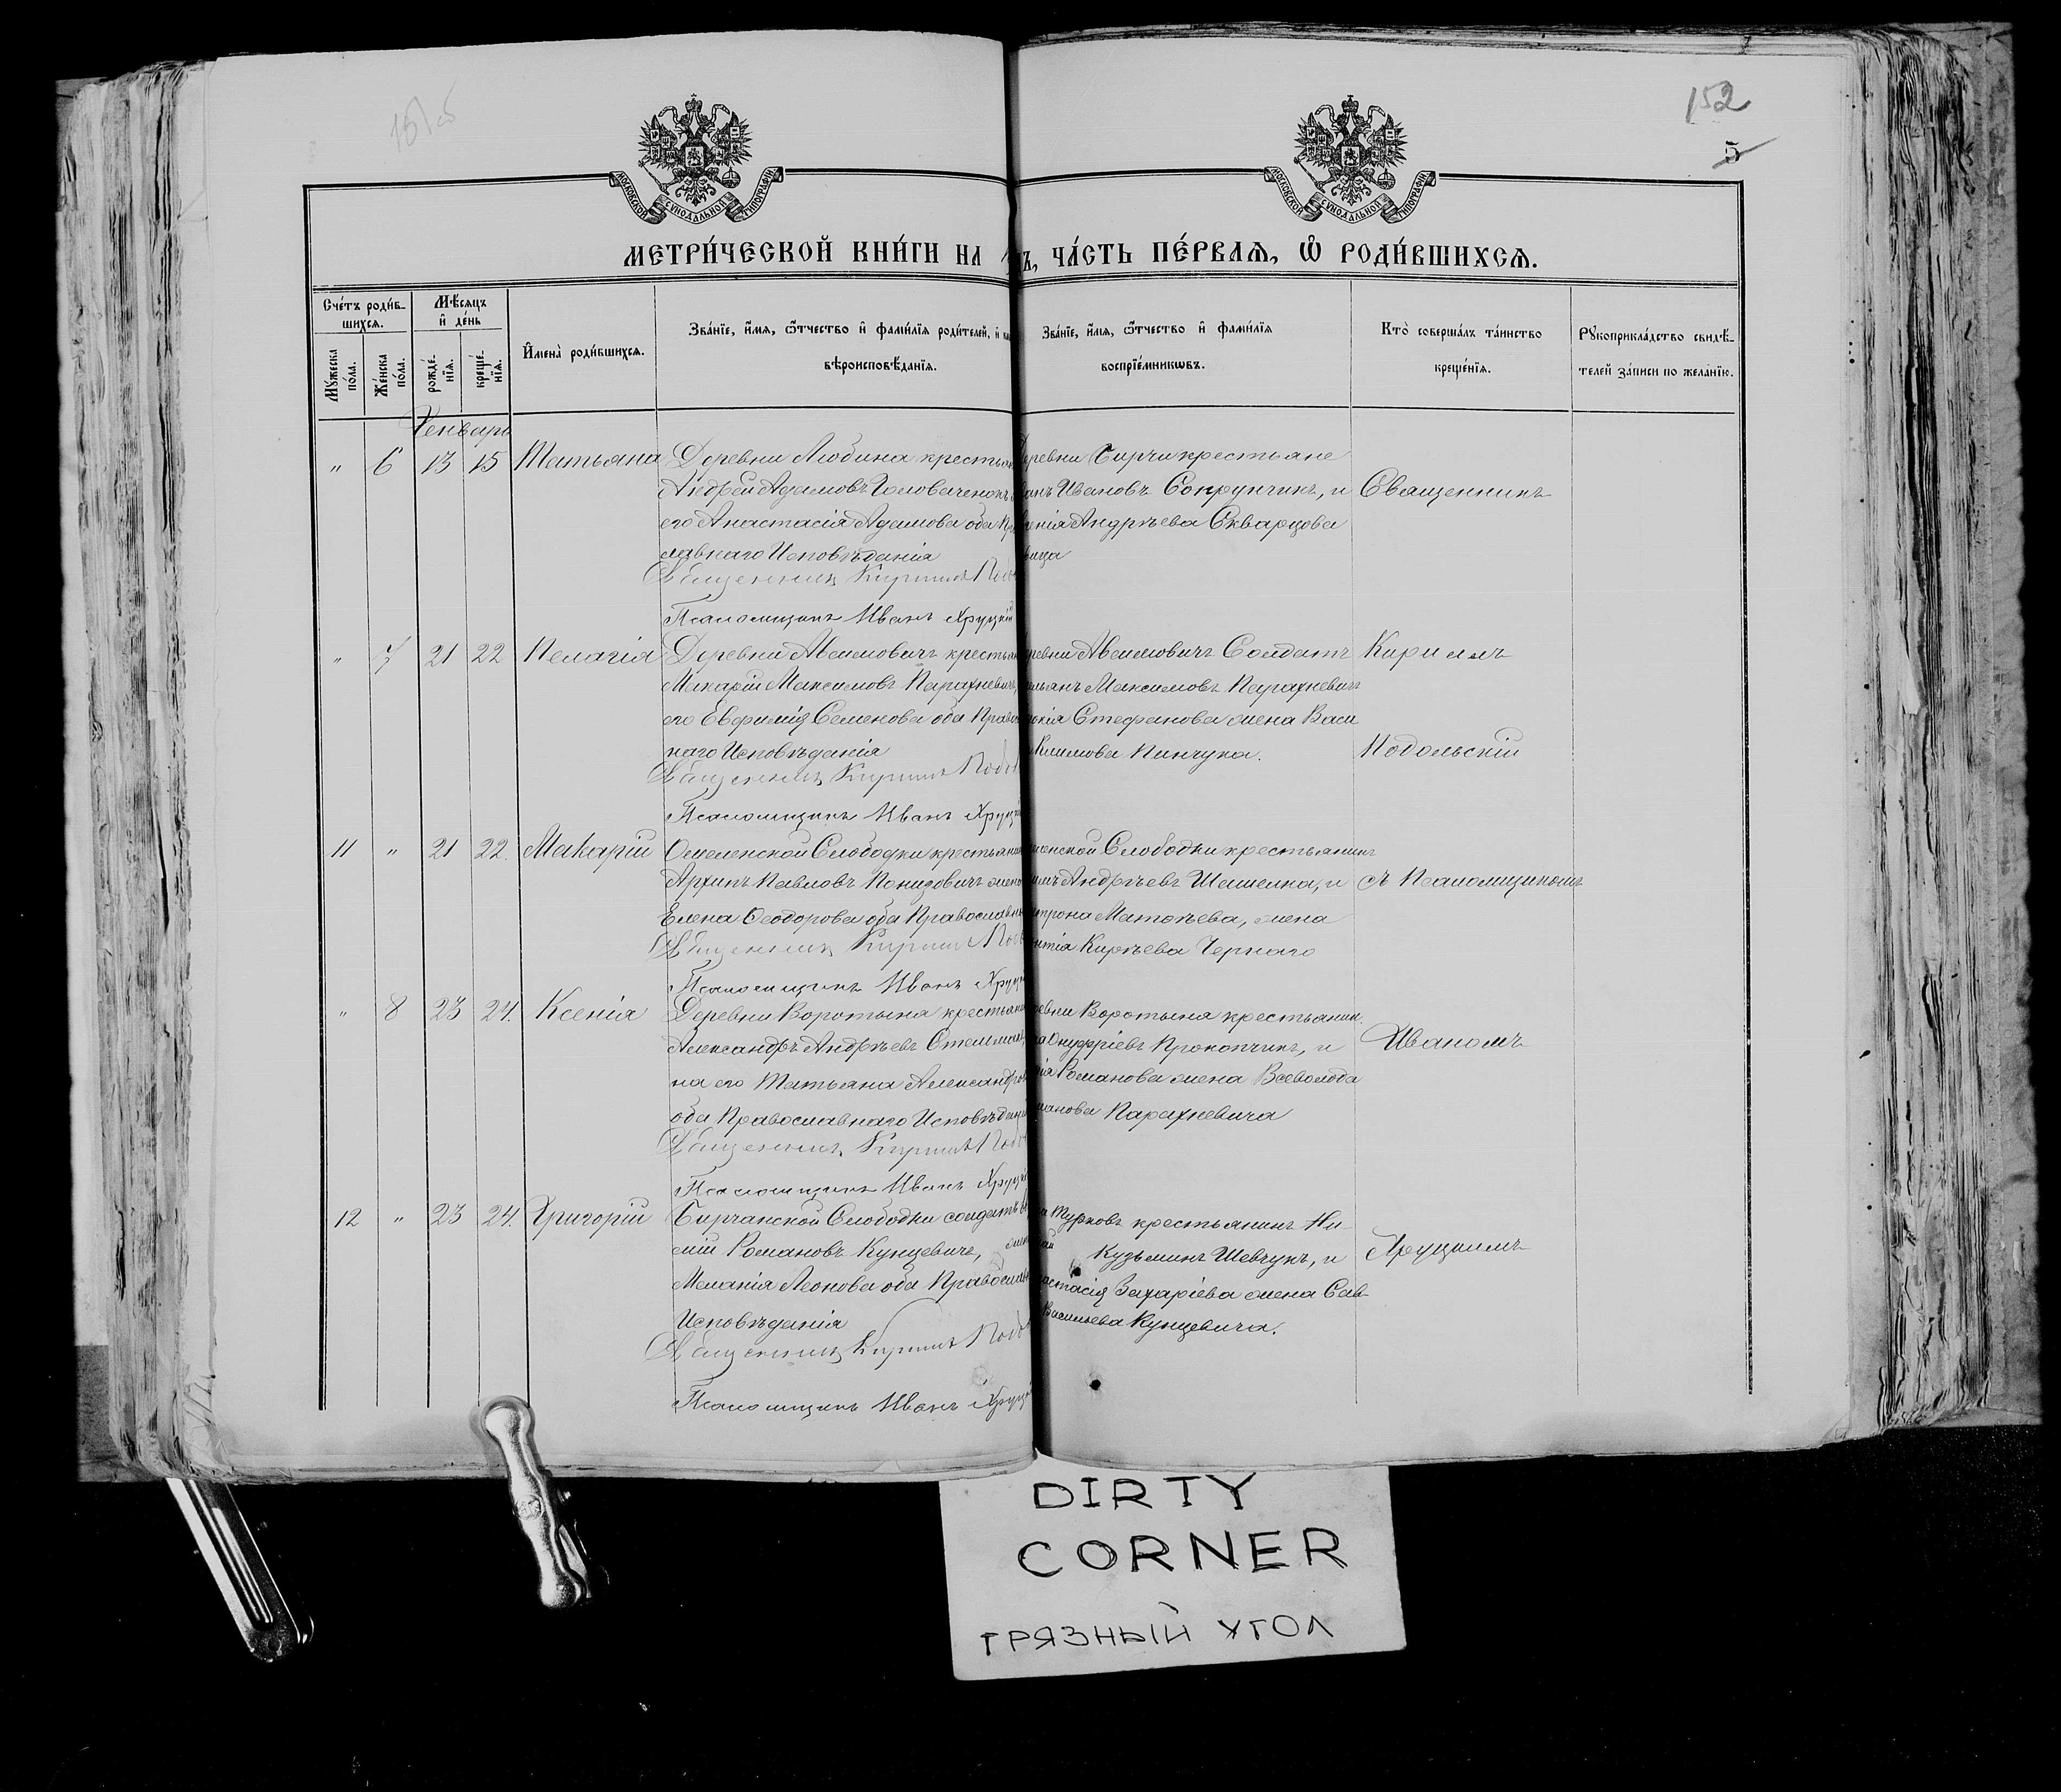 152
5
МОСКОВСКОЙ СѴНОДАЛЬНОЙ ТИПОГРАФІИ
МОСКОВСКОЙ СѴНОДАЛЬНОЙ ТИПОГРАФІИ
МЕТРИ́ЧЕСКОЙ КНИ́ГИ НА
Ъ, ЧА́СТЬ ПЕ́РВАѦ, Ѡ҆ РОДИ́ВШИХСѦ.
Сче́тъ роди́в-
шихсѧ.
Мѣ́сѧцъ
и҆ де́нь
Мꙋ́жеска по́ла.
Же́нска по́ла.
рожде́-нїѧ.
креще́-нїѧ.
И҆мена̀ роди́вшихсѧ.
Зва́нїе, и҆́мѧ, ѻ҆́тчество и҆ фами́лїѧ роди́телей, и҆
вѣроисповѣ́данїѧ.
Зва́нїе, и҆́мѧ, ѻ҆́тчество и҆ фами́лїѧ
воспрїе́мникѡвъ.
Кто̀ соверша́лъ та́инство
креще́нїѧ.
Рꙋкоприкла́дство свидѣ́-
телей за́писи по жела́нїю.
Генварь
" 6 13 15 Татьяна Деревни Любина крестьян
Андрей Адамовъ Головаченокъ
его Анастасія Адамова оба Пра
лавнаго Исповѣданія
Священникъ Кириллъ Подо
Псаломщикъ Иванъ Хруцкій
ревни Бирчи крестьяне
анъ Ивановъ Сокрунчикъ, и
енія Андрѣева Скварцова
вица
Священникъ
" 7 21 22 Пелагія Деревни Авсимовичъ крестьян
Макарій Максимовъ Парахневичъ,
его Евфимія Семенова оба Право
наго Исповѣданія
Священникъ Кириллъ Подо
Псаломщикъ Иванъ Хруцкі
ревни Авсимовичъ Солдатъ
ильянъ Максимовъ Парахневичъ
окія Стефанова жена Васи
Климова Пинчука.
Кириллъ
Подольскій
11 " 21 22. Макарій Омеленской Слободки крестьянин
Архипъ Павловъ Понидовичъ жена
Елена Ѳеодорова оба Православн
Священникъ Кириллъ Подо
Псаломщикъ Иванъ Хруц
ленской Слободки крестьянинъ
имъ Андрѣевъ Шашелка, и
трона Матѳѣева, жена
нтія Кирѣева Чернаго
съ Псаломщикомъ
" 8 23 24. Ксенія Деревни Воротына крестьяни
Александръ Андрѣевъ Стельмах
на его Татьяна Александров
оба Православнаго Исповѣдані
Священникъ Кириллъ Подо
Псаломщикъ Иванъ Хруцкі
ревни Воротына крестьянин.
а Онуфріевъ Прокопчикъ, и
ія Романова жена Всеволода
манова Парахневича
Иваномъ
12 " 23 24. Григорій Бирчанской Слободки солдатъ
мій Романовъ Кунцевичъ, жен
Меланія Леонова оба Православн
Исповѣданія
Священникъ Кириллъ Подо
Псаломщикъ Иванъ Хруцк
и Турковъ крестьянинъ Ни-
лай Кузьминъ Шевчукъ, и
астасія Захаріева жена Сав-
Васильева Кунцевича.
Хруцкимъ
DIRTY
CORNER
ГРЯЗНЫЙ УГОЛ